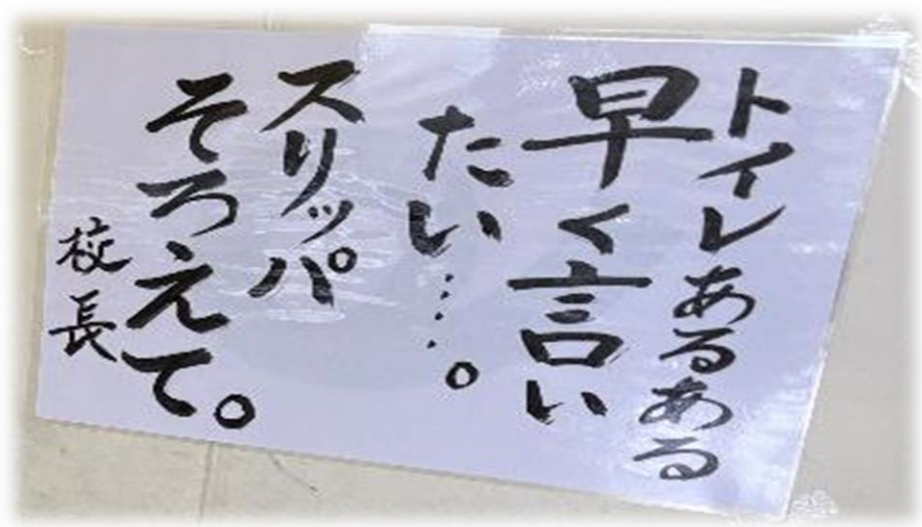 トイレあるある
早く言い
たい….。
スリッパ
そろえて。
校長